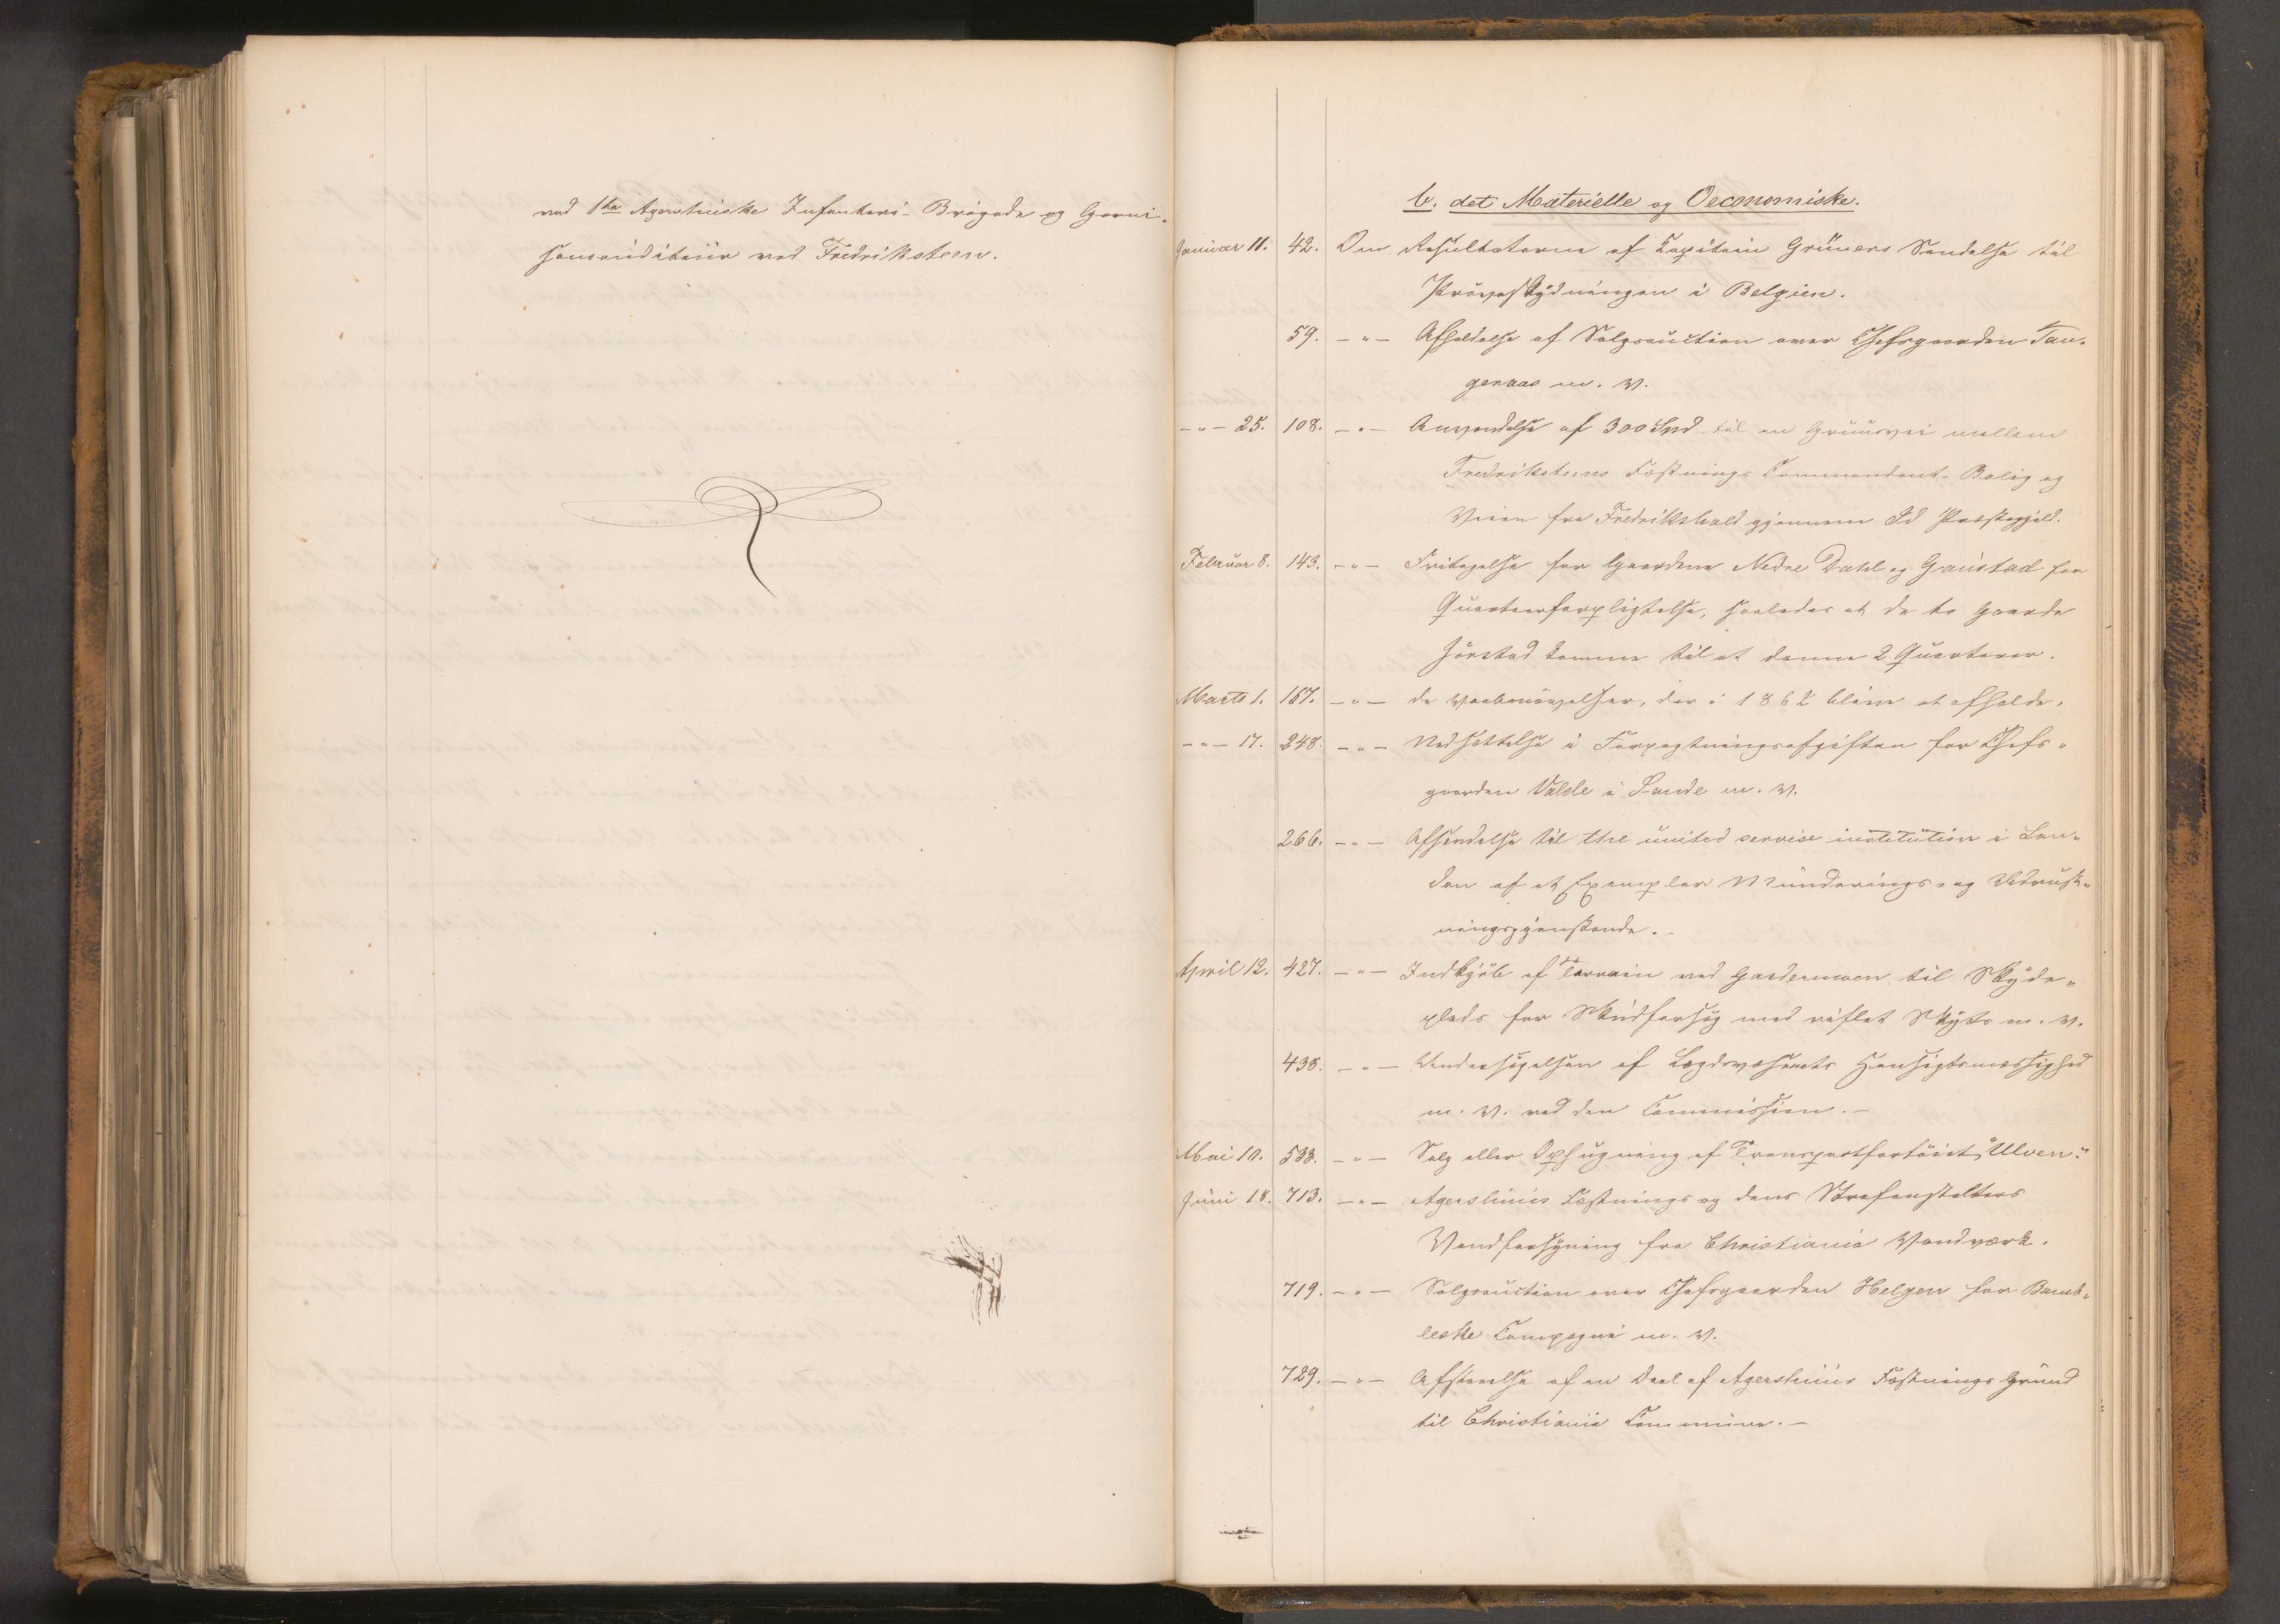 ved 1ste Agershusiske Infanteri-Brigade og Garni-
sonsauditeur ved Fredriksteen.
b. det Materielle og Oeconomiske.
Januar 11. 42. Om Resultaterne af Capitain Grüners Sendelse til
Prøveskydningen i Belgien.
59. -"- Afholdelse af Salgsauction over Chefsgaarden Tan-
geraas m. v.
-"- 25. 108. -"- Anvendelse af 300 Spd til en Gruusvei mellem
Fredriksteens Fæstnings Commandant-Bolig og
Veien fra Fredrikshald gjennem Id Præstegjeld.
Februar 8. 143. -"- Fritagelse for Gaardene Nedre Dahl og Gaustad for
Quarteerforpligtelse, saaledes at de to Gaarde
Jörstad komme til at danne 2 Quarterer.
Marts 1. 167. -"- de Vaabenøvelser, der i 1862 blive at afholde.
-"- 17. 248. -"- Nedsættelse i Forpagtningsafgiften for Chefs-
gaarden Valle i Sande m. v.
266. -"- Afsendelse til the united service institution i Lon-
don af et Exemplar Munderings- og Udrust-
ningsgjenstande.
April 12. 427. -"- Indkjöb af Terrain ved Gardermoen til Skyde-
plads for Skudforsøg med riflet Skyts m. v.
438. -"- Undersøgelsen af Lægdsvæsenets Hensigtsmæssighed
m. v. ved den Commission.-
Mai 10. 533. -"- Salg eller Ophugning af Transportfartöiet "Ulven."
Juni 18. 713. -"- Agershuus Fæstnings og dens Strafanstalters
Vandforsyning fra Christiania Vandværk.
719. -"- Salgsauction over Chefsgaarden Helgen for Bamb-
leske Compagni m. v.
729. -"- Afstaaelse af en Deel af Agershuus Fæstnings Grund
til Christiania Commune.-